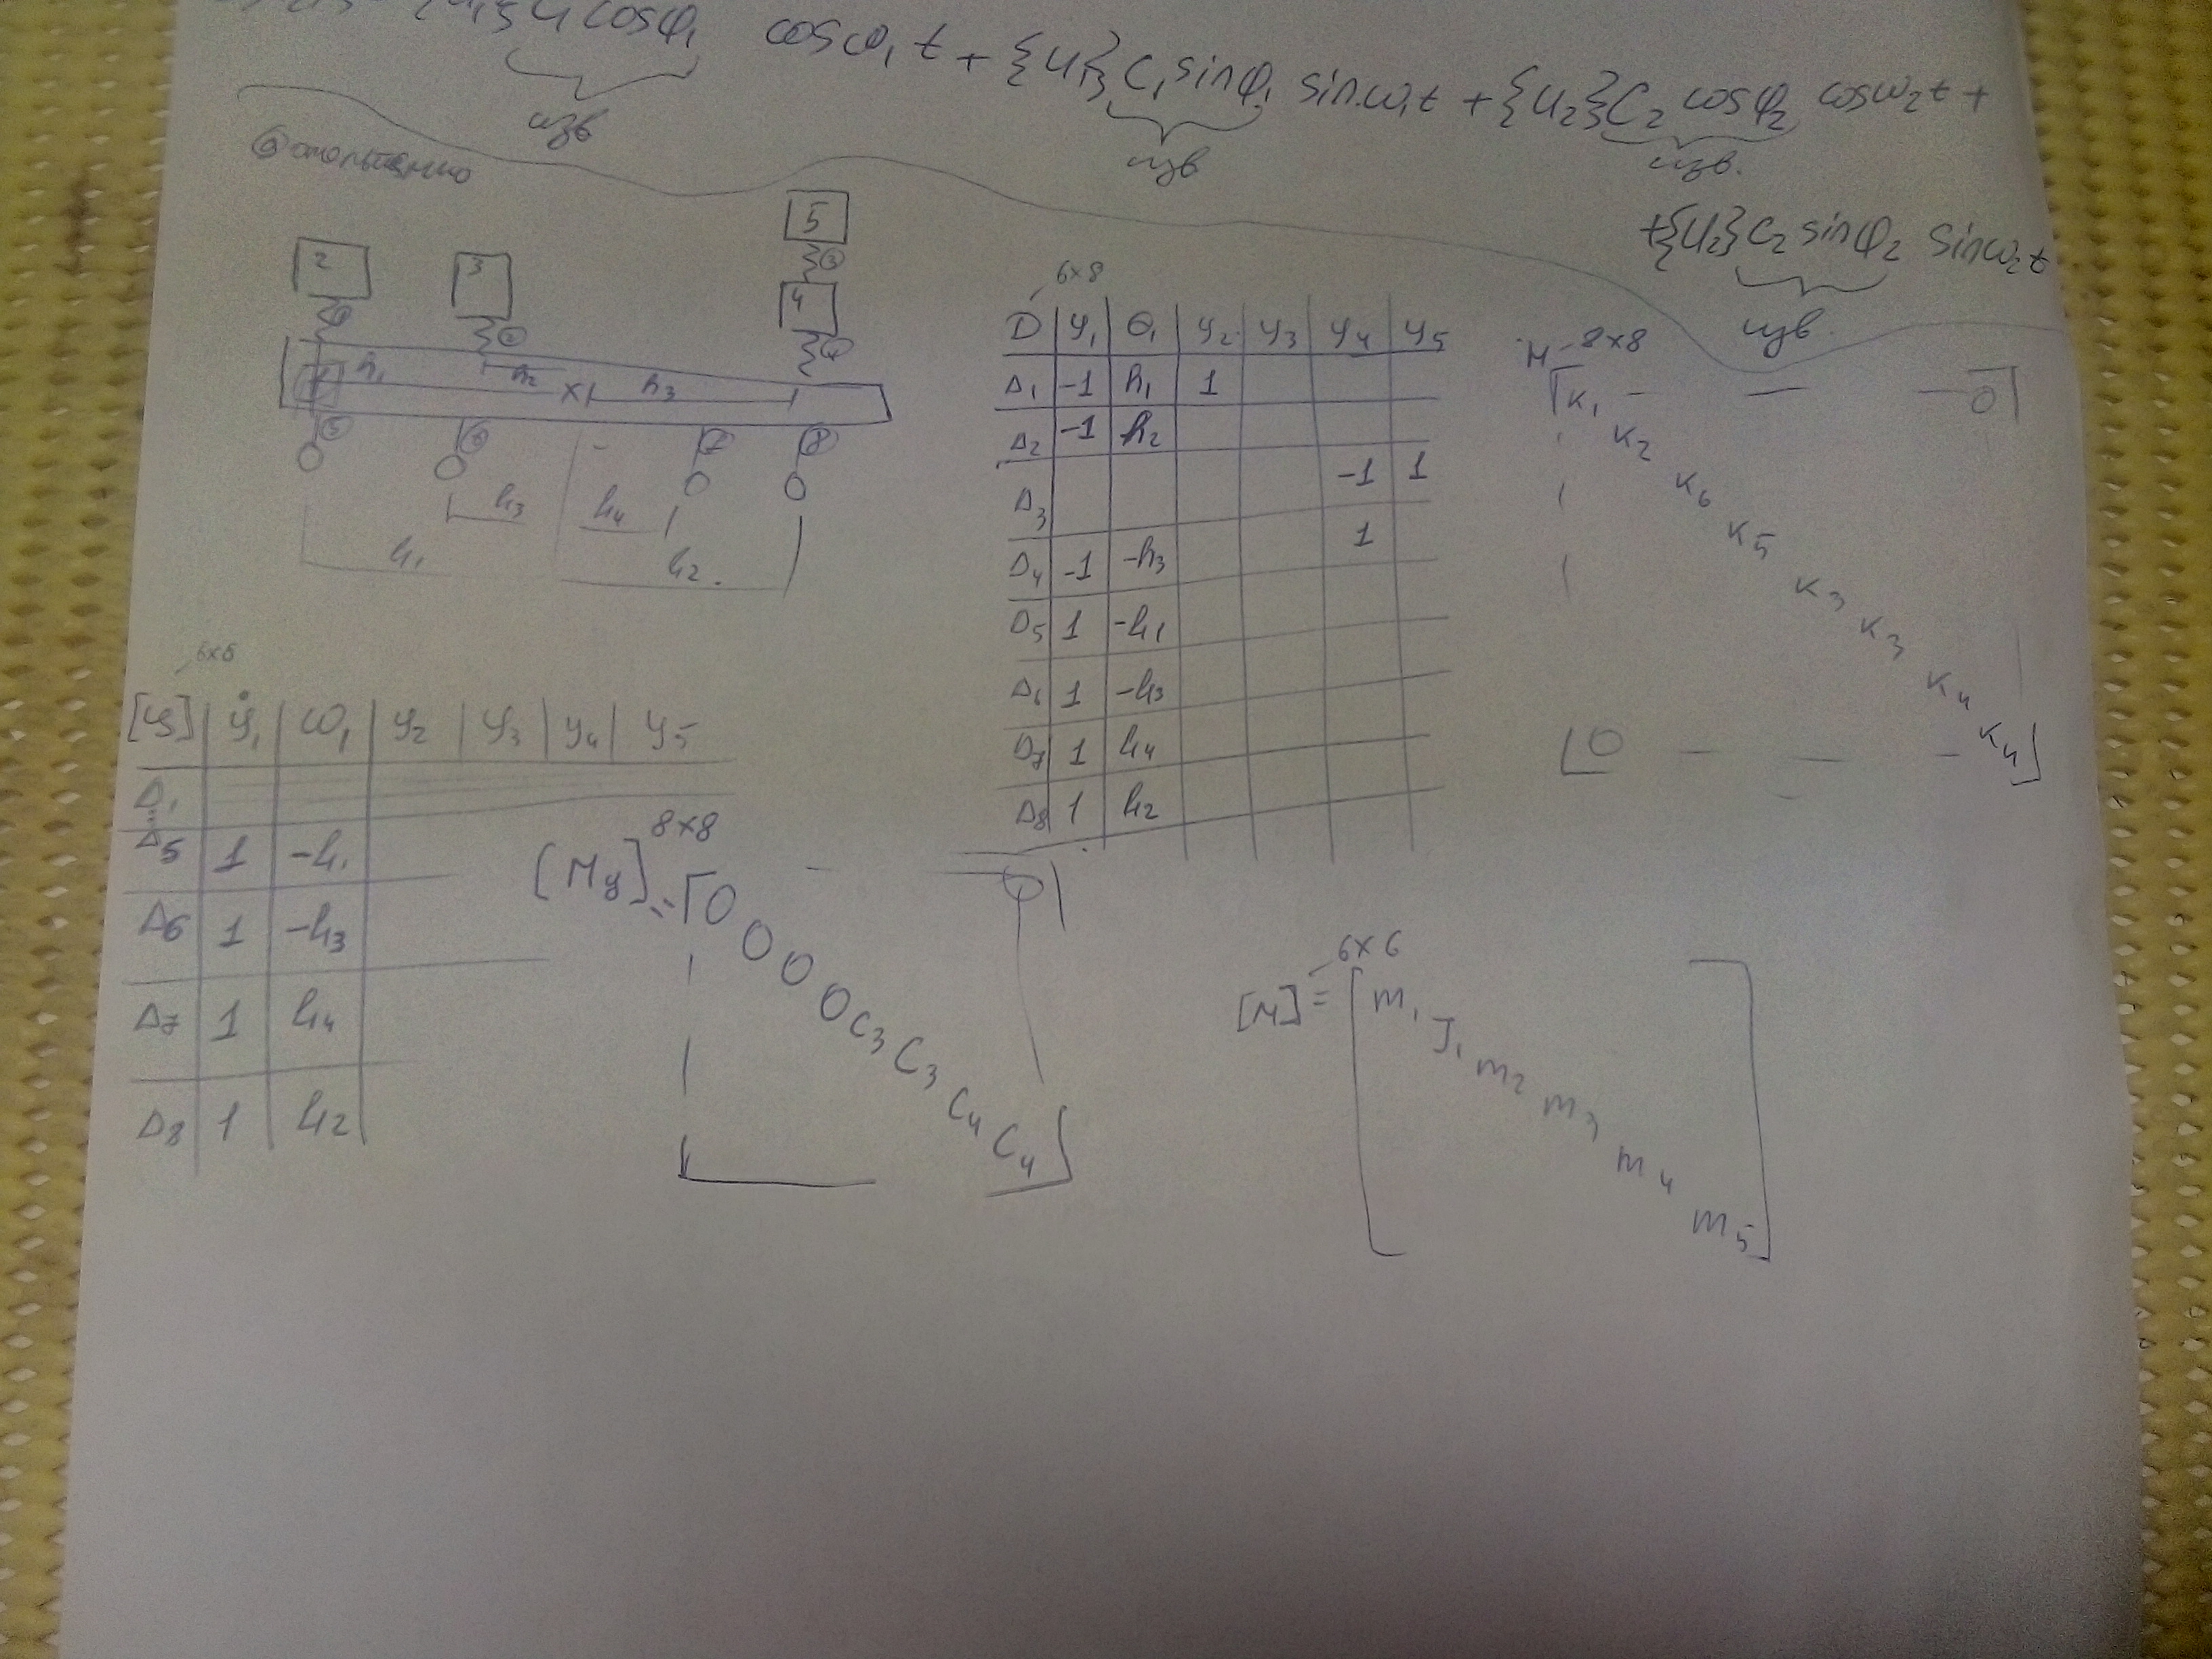 cosφ₁ cosω₁t + {U₁}C₁sinφ₁ sinω₁t + {U₂}C₂ cosφ₂ cosω₂t +
изв
изв
изв.
+{U₂}C₂ sinφ₂ sinω₂t
изв.
5
3
2 3 4
1 2 4
h₁ h₂ x1 h₃
5 6 7 8
l₃ l₄
l₁ l₂.
6×8
D y₁ θ₁ y₂ y₃ y₄ y₅
Δ₁ -1 h₁ 1
Δ₂ -1 h₂
Δ₃ -1 1
Δ₄ -1 -h₃ 1
Δ₅ 1 -l₁
Δ₆ 1 -l₃
Δ₇ 1 l₄
Δ₈ 1 l₂
H 8×8
K₁ 0
K₂
K₆
K₅
K₃
K₃
K₄
0 K₄
6×6
ẏ₁ ω₁ y₂ y₃ y₄ y₅
Δ₁
Δ₅ 1 -l₁
Δ₆ 1 -l₃
Δ₇ 1 l₄
Δ₈ 1 l₂
8×8
[Му]= 0 0
0
0
0
C₃
C₃
C₄
C₄
6×6
[М]= m₁
J₁
m₂
m₃
m₄
m₅